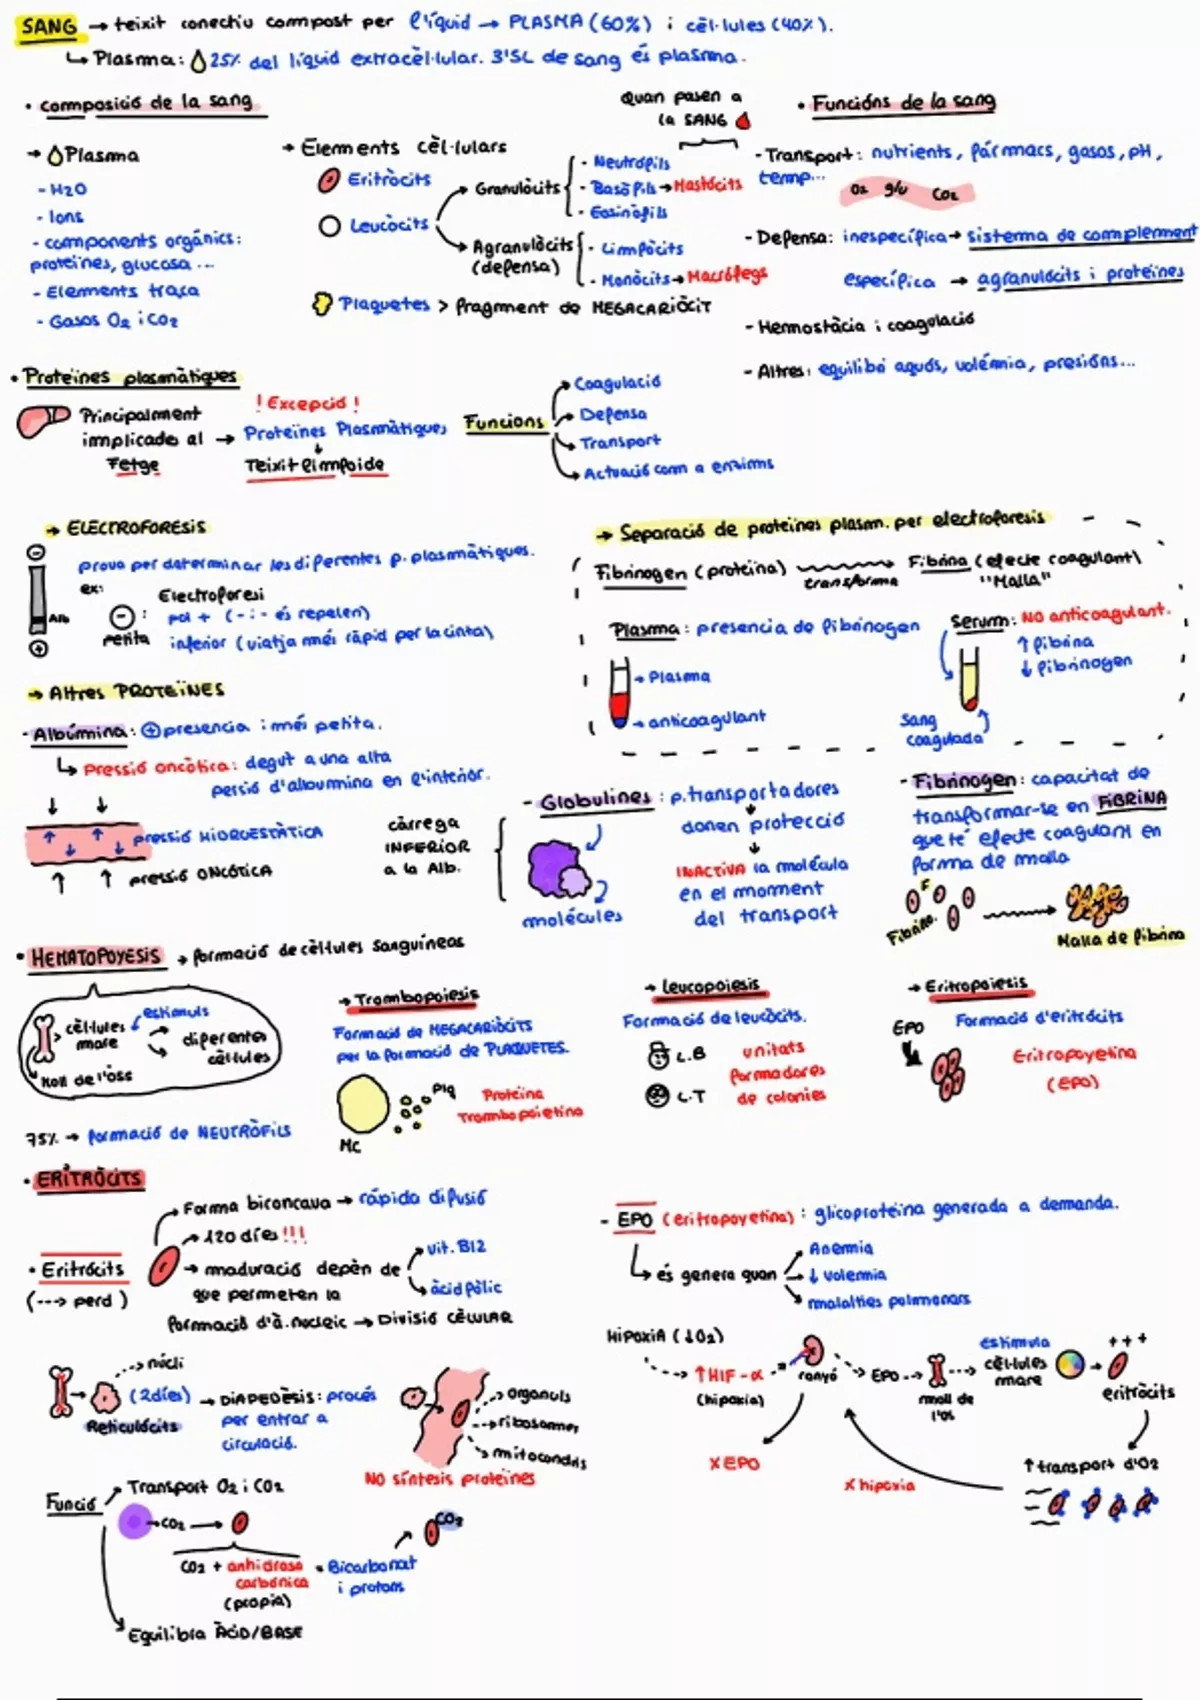 SANG → teixit conectiu compost per líquid → PLASMA (60%) i cèl·lules (40%).
↳ Plasma: 25% del líquid extracèl·lular. 3'5L de sang és plasma.
• composició de la sang
→ Plasma
- H2O
- Ions
- components orgànics:
proteïnes, glucosa ...
- Elements traça
- Gasos O2 i CO2
→ Elements cèl·lulars
Eritròcits
Leucòcits
Granulòcits
- Neutròfils
- Basòfils → Mastòcits
- Eosinòfils
Agranulòcits
(defensa)
- Limfòcits
- Monòcits → Macròfegs
Plaquetes > fragment de MEGACARIÒCIT
Quan pasen a
la SANG
• Funcións de la sang
- Transport: nutrients, fármacs, gasos, pH,
temp...
O2 glu CO2
- Defensa: inespecífica → sistema de complement
específica → agranulòcits i proteïnes
- Hemostàcia i coagulació
- Altres: equilibri aquós, volémia, presións...
• Proteïnes plasmàtiques
Principalment
implicades al →
Fetge
! Excepció !
Proteïnes Plasmàtiques
↓
Teixit limfoide
Funcions
Coagulació
Defensa
Transport
Actuació com a enzims
→ ELECTROFORESIS
prova per determinar les diferentes p. plasmàtiques.
ex:
Alb
Electroforesi
⊖ : pol + (- i - és repelen)
petita inferior (viatja méi ràpid per la cinta)
→ Separació de proteïnes plasm. per electroforesis
Fibrinogen (proteïna) transforma Fibrina (efecte coagulant)
"Malla"
Plasma: presencia de fibrinogen
→ Plasma
→ anticoagulant
Serum: NO anticoagulant.
↑ fibrina
↓ fibrinogen
Sang
coagulada
→ Altres PROTEÏNES
- Albúmina: ⊕ presencia i méi petita.
↳ pressió oncòtica: degut a una alta
persió d'alboumina en l'interior.
pressió HIDROESTÀTICA
pressió ONCÒTICA
càrrega
INFERIOR
a la Alb.
- Globulines: p. transportadores
↓
donen protecció
↓
INACTIVA la molécula
en el moment
del transport
molécules
- Fibrinogen: capacitat de
transformar-se en FIBRINA
que té efecte coagulant en
forma de malla
F
Fibrino.
Malla de fibrina
• HEMATOPOYESIS → formació de cèl·lules sanguíneas
cèl·lules
mare
estímuls
diferentes
cèl·lules
Moll de l'òss
75% → formació de NEUTRÒFILS
→ Trombopoiesis
Formació de MEGACARIÒCITS
per la formació de PLAQUETES.
Plq
MC
Proteïna
Trombopoietina
→ Leucopoiesis
Formació de leucòcits.
L.B
L.T
unitats
formadores
de colonies
→ Eritropoiesis
EPO
Formació d'eritròcits
Eritropoyetina
(EPO)
• ERITRÒCITS
• Eritròcits
(---> perd)
Forma biconcava → rápida difusió
120 díes !!!
maduració depèn de
que permeten la
formació d'à. nucleic → Divisió CÈLULAR
vit. B12
àcid fòlic
núcli
Reticulòcits
(2díes) → DIAPEDÈSIS: procés
per entrar a
circulació.
organuls
ribosomes
mitocondris
NO síntesis proteïnes
Funció
Transport O2 i CO2
CO2
CO2
CO2 + anhidrasa
carbónica
(propia)
Bicarbonat
i protons
Equilibra ÀCID/BASE
- EPO (eritropoyetina): glicoproteïna generada a demanda.
↳ és genera quan
Anemia
↓ volemia
malalties pulmonars
HIPOXIA (↓O2)
↑ HIF-α
(hipoxia)
ronyó
EPO
moll de
l'os
estimula
cèl·lules
mare
+++
eritròcits
X EPO
X hipoxia
↑ transport d'O2